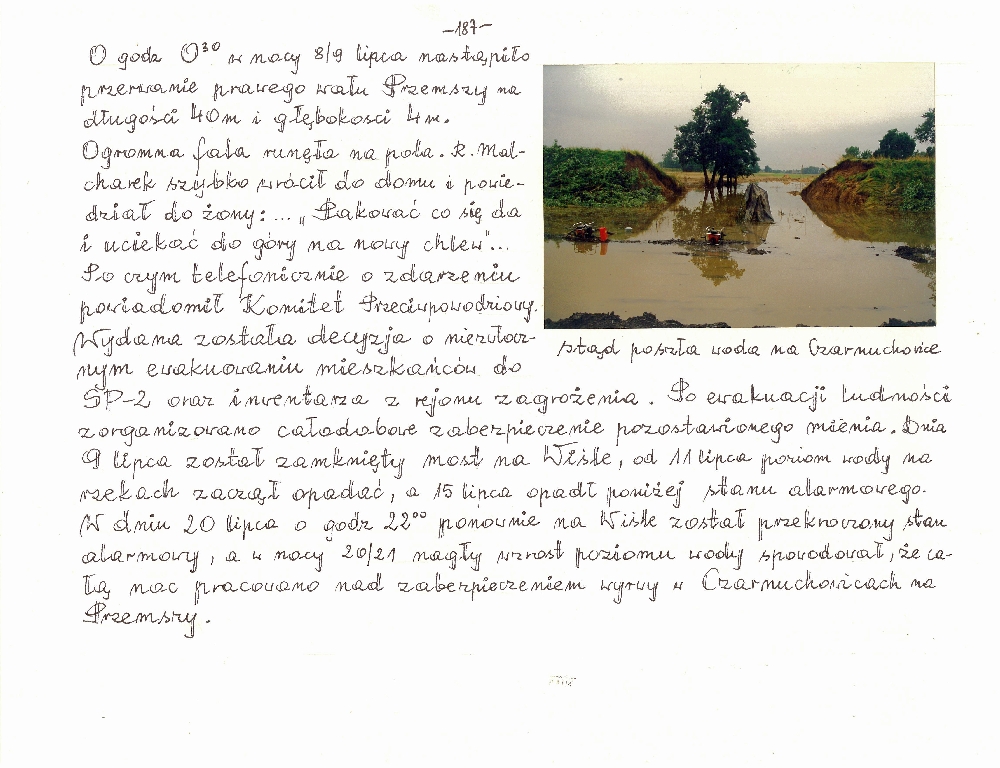 -187-
O godz 0³⁰ w nocy 8/9 lipca nastąpiło
przerwanie prawego wału Przemszy na
długości 40m i głębokości 4m.
Ogromna fala runęła na pola. R. Mal-
charek szybko wrócił do domu i powie-
dział do żony: ... „Pakować co się da
i uciekać do góry na nowy chlew"...
Po czym telefonicznie o zdarzeniu
powiadomił Komitet Przeciwpowodziowy.
Wydana została decyzja o niezwłocz-
nym ewakuowaniu mieszkańców do
stąd poszła woda na Czarnuchowice
SP-2 oraz inwentarza z rejonu zagrożenia. Po ewakuacji ludności
zorganizowano całodobowe zabezpieczenie pozostawionego mienia. Dnia
9 lipca został zamknięty most na Wiśle, od 11 lipca poziom wody na
rzekach zaczął opadać, a 15 lipca opadł poniżej stanu alarmowego.
W dniu 20 lipca o godz 22⁰⁰ ponownie na Wiśle został przekroczony stan
alarmowy, a w nocy 20/21 nagły wzrost poziomu wody spowodował, że ca-
łą noc pracowano nad zabezpieczeniem wyrwy w Czarnuchowicach na
Przemszy.